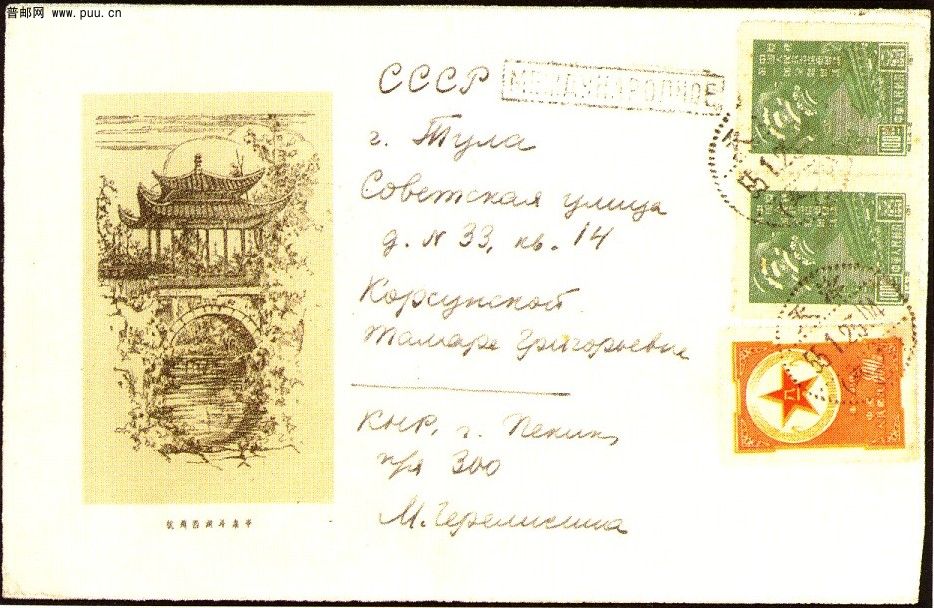 普邮网 www.puu.cn
СССР
МЕЖДУНАРОДНОЕ
г. Тула
Советская улица
д. N 33, кв. 14
Корсунской
Тамаре Григорьевне
КНР, г. Пекин,
п/я 300
М. Черемисина
55.1.2
55.1.25